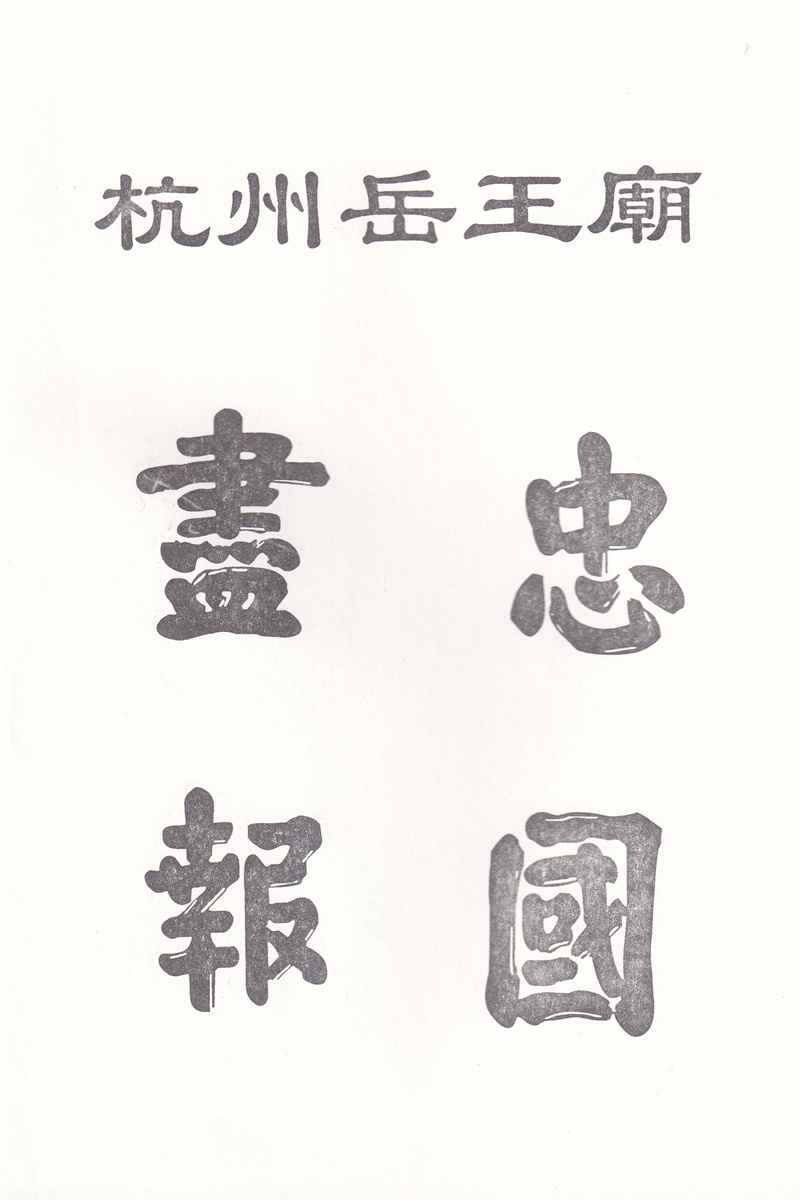 杭州岳王廟
盡忠
報國